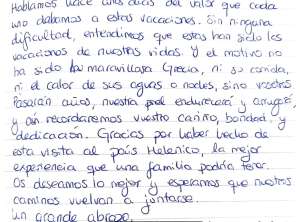 Hablamos hace unos días del valor que cada
uno dábamos a estas vacaciones. Sin ninguna
dificultad, entendimos que estas han sido las
vacaciones de nuestras vidas. Y el motivo no
ha sido la maravillosa Grecia, ni su comida,
ni el calor de sus aguas o nodes, sino vostros
Pasarán años, nuestra piel endurecerá y arrugará,
y aún recordaremos vuestro cariño, bondad y
dedicación. Gracias por haber hecho de
esta visita al país Helenico, la mejor
experiencia que una familia podría tener.
Os deseamos lo mejor y esperamos que nuestros
caminos vuelvan a juntarse.
Un grande abrazo.